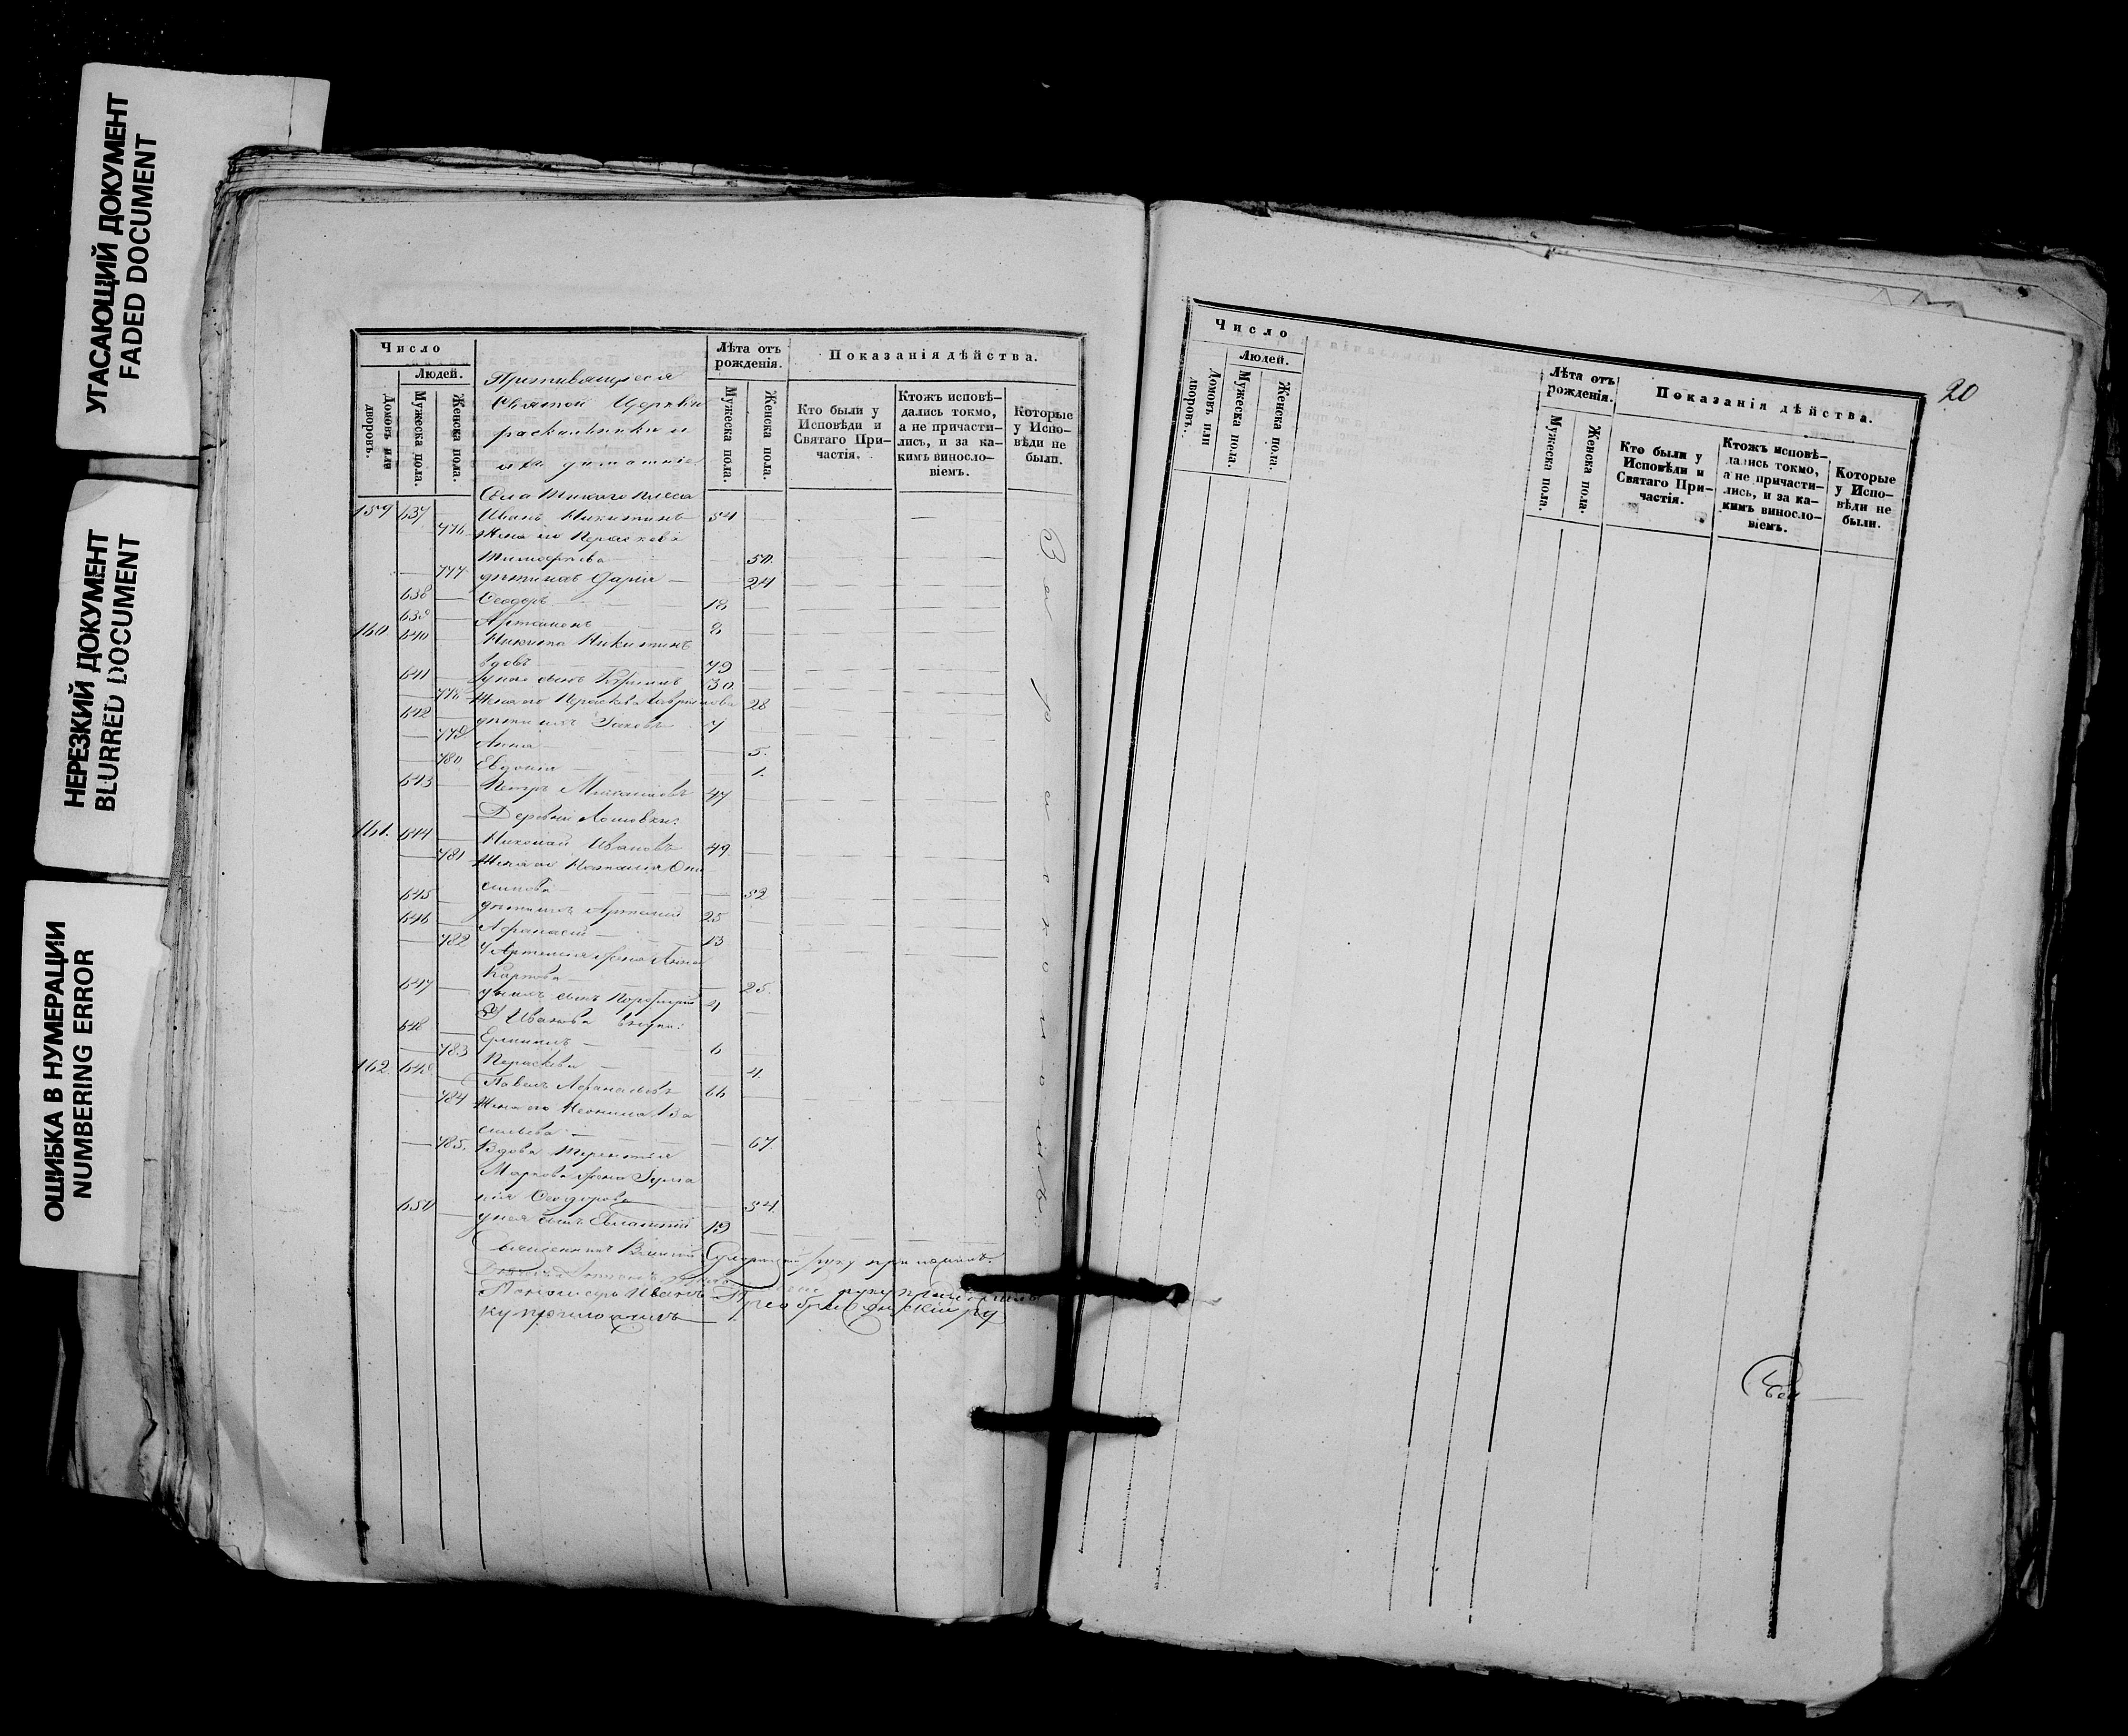 УГАСАЮЩИЙ ДОКУМЕНТ
FADED DOCUMENT
НЕРЕЗКИЙ ДОКУМЕНТ
BLURRED DOCUMENT
ОШИБКА В НУМЕРАЦИИ
NUMBERING ERROR
Число
Людей.
Домовъ или дворовъ.
Мужеска пола.
Женска пола.
Святой Церкви
раскольники и
Села
Лѣта отъ рожденія.
Мужеска пола.
Женска пола.
Показанія дѣйства.
Кто были у Исповѣди и Святаго Причастія.
Ктожъ исповѣдались токмо, а не причастились, и за какимъ винословіемъ.
Которые у Исповѣди не были.
За расколомъ
159 637 Иванъ Никитинъ 54
776 Жена его Параскева
Тимофеева 50.
777 дѣти ихъ Дарія 24
638 Ѳеодоръ 18
639 Артамонъ 8
160 640 Никита Никитинъ
вдовъ 79
641 у него сынъ 30.
778 Жена его Параскева 28
642 дѣти ихъ Іаковъ 7
779 Анна 5.
780 Евдокія 1.
643 Петръ Михайловъ 47
Деревни
161. 644 Николай Ивановъ 49.
781 Жена его Наталія Они
симова 52
645 дѣти ихъ Артемій 25
646 Афанасій 13
782 У Артемія жена Анна
Карпова 25.
647 у нихъ сынъ Порфирій 4
У Ивана внуки:
648 6
783 Параскева 4.
162. 649 Павелъ Афанасьевъ 66
784 Жена его Неонила Ва
сильева 67.
785. Вдова Терентія
Маркова жена Іулiа
нія Ѳеодорова 54.
650 у нея сынъ 19
Священникъ руку приложилъ.
руку приложилъ
Пономарь Иванъ Преображенскій ру
ку приложилъ
20
Число
Людей.
Домовъ или дворовъ.
Мужеска пола.
Женска пола.
Лѣта отъ рожденія.
Мужеска пола.
Женска пола.
Показанія дѣйства.
Кто были у Исповѣди и Святаго Причастія.
Ктожъ исповѣдались токмо, а не причастились, и за какимъ винословіемъ.
Которые у Исповѣди не были.